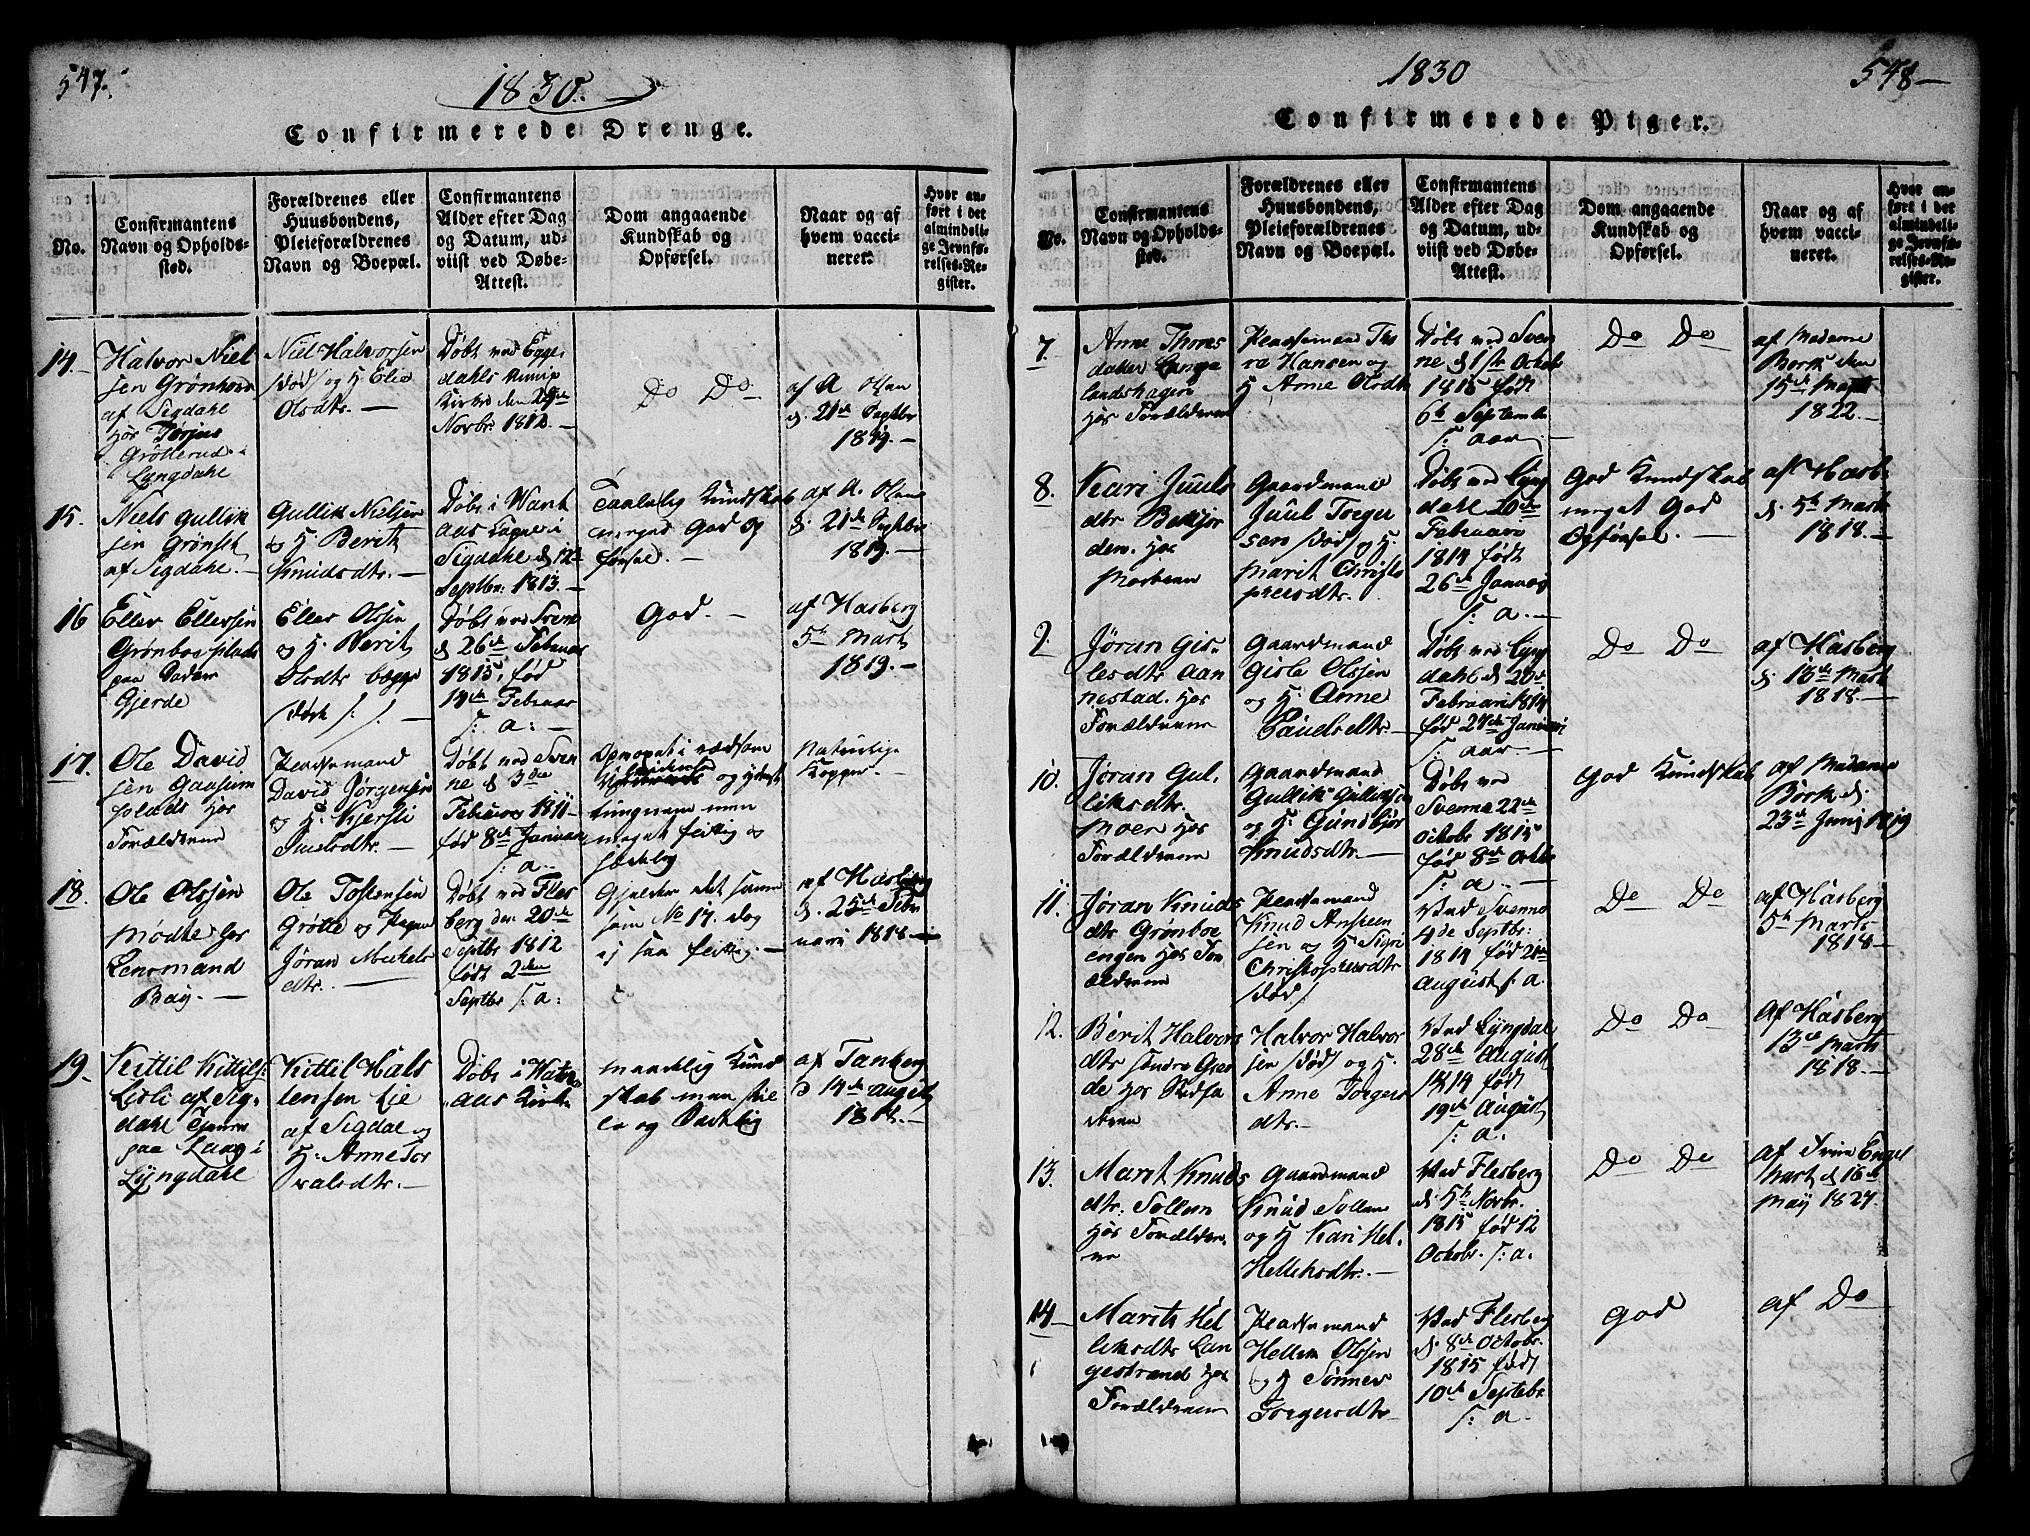 547.
1830.
Confirmerede Drenge.
No.
Confirmantens
Navn og Opholds-
sted.
Forældrenes eller
Huusbondens,
Pleieforældrenes
Navn og Boepæl.
Confirmantens
Alder efter Dag
og Datum, ud-
viist ved Døbe-
Attest.
Dom angaaende
Kundskab og
Opførsel.
Naar og af
hvem vacci-
neret.
Hvor an-
ført i det
almindeli-
ge Jevnfø-
relses-Re-
gister.
14.
Halvor Niel
sen Grønhovd
af Sigdahl
hos Torjus
Grøtterud
Lyngdahl
Niel Halvorsen
/død/ og H Elie
Olsdtr. —
Døbt ved Egge
dahls
Kirke den 29de
Novbr. 1812. —
Do Do
af A Olsen
d. 21de Septbr
1819. —
15.
Niels Gullik
sen Grønset
af Sigdahl. —
Gullik Nielsen
og H Berit
Knudsdtr. —
Døbt i
aas Sogn i
Sigdahl d 12
Septbr: 1813. —
Taalelig Kundskab
meget God Op
førsel. —
af A. Olsen
d. 21de Septbr
1819. —
16
Eller Ellersen
Grønboeplads
paa
Gjerde
Eller Olsen
og H Berit
Olsdtr begge
/død/ —
Døbt ved Sven
d 26de Februar
1815, fød
14de Februar
s: a: —
God. —
af Hasberg
5te Marts
1819. —
17.
Ole David
sen Gaasum
plads hos
Forældrene
Pladsmand
David Jørgensen
og H. Kjersti
Juelsdtr. —
Døbt ved Sven
ne d 3die
Februar 1811
fød 8de Januar
s: a —
og
men
meget flittig og
sædelig
Naturlige
Kopper. —
18.
Ole Olssen
Mødte hos
Lensmand
Bay. —
Ole Tostensen
Grøtte og Pigen
Jøran Mickels
dtr. —
Døbt ved Fles
berg den 20de
Septbr 1812
født 2den
Septbr s: a:
Gjelder det samme
som No 17. dog
ej saa flittig. —
af Hasberg
d. 25de Febr
uari 1818 —
19.
Kittil Kittils
Lisli af Sig-
dahl Tjener
paa Laag i
Lyngdahl
Kittil Hals
tensen Lie
af Sigdal og
H: Anne Tor
valsdtr. —
Døbt i
aas Kirke
maadelig Kund
skab men stil
le og Sædelig
af Tanberg
d 14de August
1818. —
1830
548 —
Confirmerede Piger.
No.
Confirmantens
Navn og Opholds-
sted.
Forældrenes eller
Huusbondens,
Pleieforældrenes
Navn og Boepæl.
Confirmantens
Alder efter Dag
og Datum, ud-
viist ved Døbe-
Attest.
Dom angaaende
Kundskab og
Opførsel.
Naar og af
hvem vacci-
neret.
Hvor an-
ført i det
almindeli-
ge Jevnfø-
relses-Re-
gister.
7.
Anne Thores
datter Lange
landshagen
hos Forældrene
Pladsmand Tho
re Hansen og
H Anne Olsdtr
Døbt ved Sven
ne d 1ste Octob
1815 født
6te September
s: aar. —
Do Do
af Madame
Bork den
15de Marts
1822. —
8.
Kari Juuls
dtr Bakjor
den. hos
Moderen
Gaardmand
Juul Torger
sen /død/ og H.
Marit Christo
phersdtr.
Døbt ved Lyng
dahl 20de
Februari
1814 født
26de Januar
s: a. —
God Kundskab
meget God
Opførsel. —
af Hasb.
d. 5te Marts
1818. —
9.
Jøran Gis-
lesdtr Aan
nestad. hos
Forældrene
Gaardmand
Gisle Olssen
og H. Anne
Døbt ved Lyng
dahl d 20de
Februari 1814
fød 27de Januari
s: aar. —
Do Do
af Hasberg
d. 18de Marts
1818. —
10.
Jøran Gul-
liksdtr.
Moen hos
Forældrene
Gaardmand
Gullik Gulliksen
og H: Gundbjør
Knudsdtr. —
Døbt ved
Svenne 22de
Octobr 1815
fød 8de Octobr
s: a. —
God Kundskab
af Madame
Bork d.
23de Junj 1819
11.
Jøran Knuds
dtr Grønboe
engen hos For
ældrene
Pladsmand
Knud
sen og H Sigri
Christophersdtr
/død/
Ved Svenne
4de Septbr:
1814 født 24de
August s. a.
Do Do
af Hasberg
5te Marts
1818 —
12.
Berit Halvors
dtr søndre Gjer
de hos Stedfa
deren
Halvor Halvor
sen /død/ og H.
Anne Torgers
dtr. —
Ved Lyngdal
28de August
1814 født
19de August
s: a.
Do Do
af Hasberg
13de Marts
1818. —
13.
Marit Knuds
dtr. Sollien
hos Forældre-
ne
Gaardmand
Knud Sollien
og H Kari Hel-
Helliksdtr. —
Ved Flesberg
d. 5te Novbr.
1815 fød 12
Octobr. s: a.
Do Do
af Trine Engel
Mart d 16de
May 1827.
14 —
Marit Hel
liksdtr Lan
gestrand hos
Forældrene
Pladsmand
Hellik Olssen
og H Sønnev
Torgersdtr —
Ved Flesberg
d. 8de Octobr.
1815 født
10de Septebr
s: a.
God
af Do